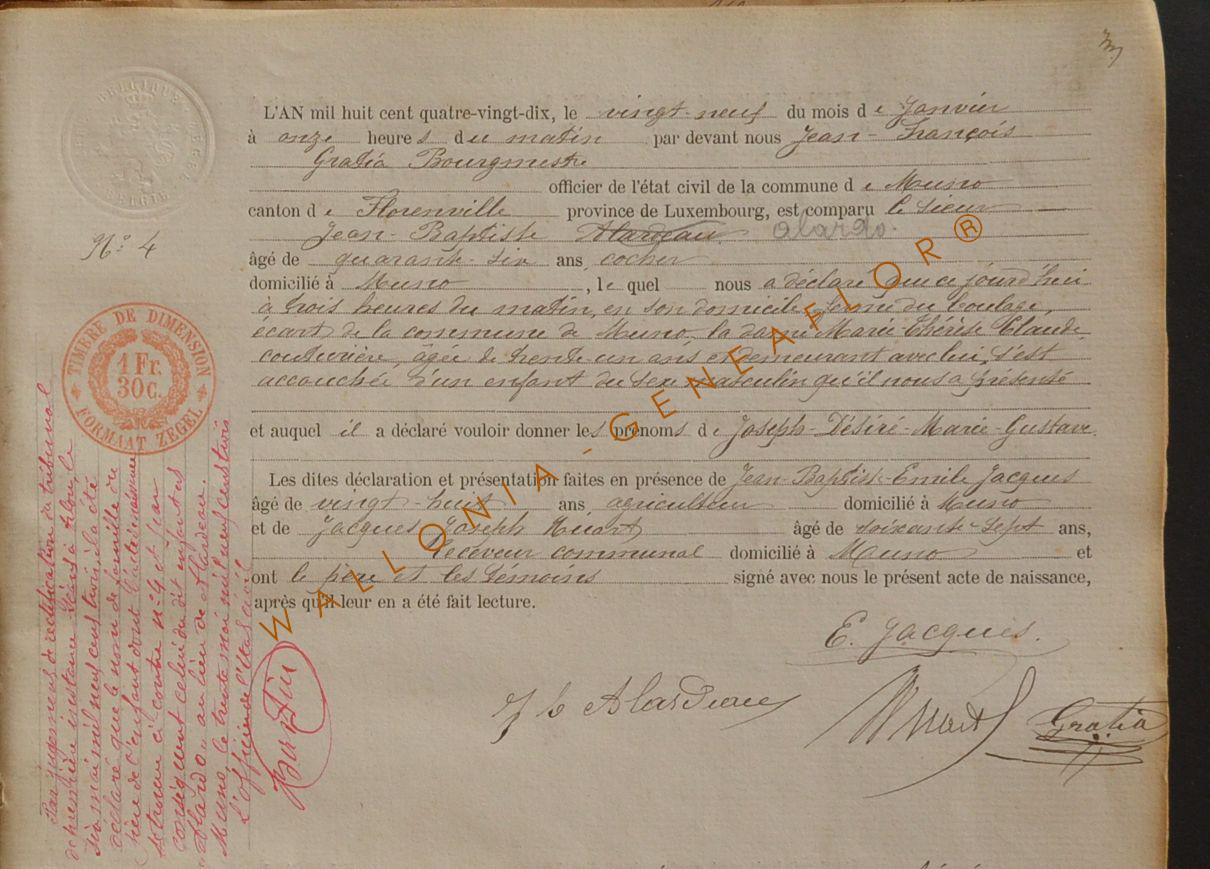 3
BELGIQUE
BELGIE
N° 4
TIMBRE DE DIMENSION
1 Fr.
30 C.
FORMAAT ZEGEL
L'AN mil huit cent quatre-vingt-dix, le vingt-neuf du mois de Janvier
à onze heures du matin par devant nous Jean-François
Gratia Bourgmestre
officier de l'état civil de la commune de Muno
canton de Florenville province de Luxembourg, est comparu le sieur
Jean-Baptiste Alardeau. alardo.
âgé de quarante-six ans, cocher
domicilié à Muno, lequel nous a déclaré que ce jourd'hui
à trois heures du matin, en son domicile, ferme du boulage,
écart de la commune de Muno, la dame Marie-Thérèse Claude,
couturière, âgée de trente un ans et demeurant avec lui, s'est
accouchée d'un enfant du sexe masculin qu'il nous a présenté
et auquel il a déclaré vouloir donner les prénoms de Joseph-Désiré-Marie-Gustave.
Les dites déclaration et présentation faites en présence de Jean-Baptiste-Emile Jacques
âgé de vingt-huit ans, agriculteur domicilié à Muno
et de Jacques Joseph Huart âgé de soixante-sept ans,
receveur communal domicilié à Muno et
ont le père et les témoins signé avec nous le présent acte de naissance,
après qu'il leur en a été fait lecture.
E. Jacques.
J b Alardeau
Huart
Gratia
Par jugement de rectification du tribunal
de première instance séant à Arlon, le
six mai mil neuf cent trois, il a été
déclaré que le nom de famille du
père de l'enfant dont l'acte de naissance
se trouve ci-contre n° 4 et par
conséquent celui du dit enfant est
"Alardo" au lieu de Alardeau.
Muno, le trente mai mil neuf cent trois
L'officier de l'Etat civil
WALLONIA-GENEAFLOR®